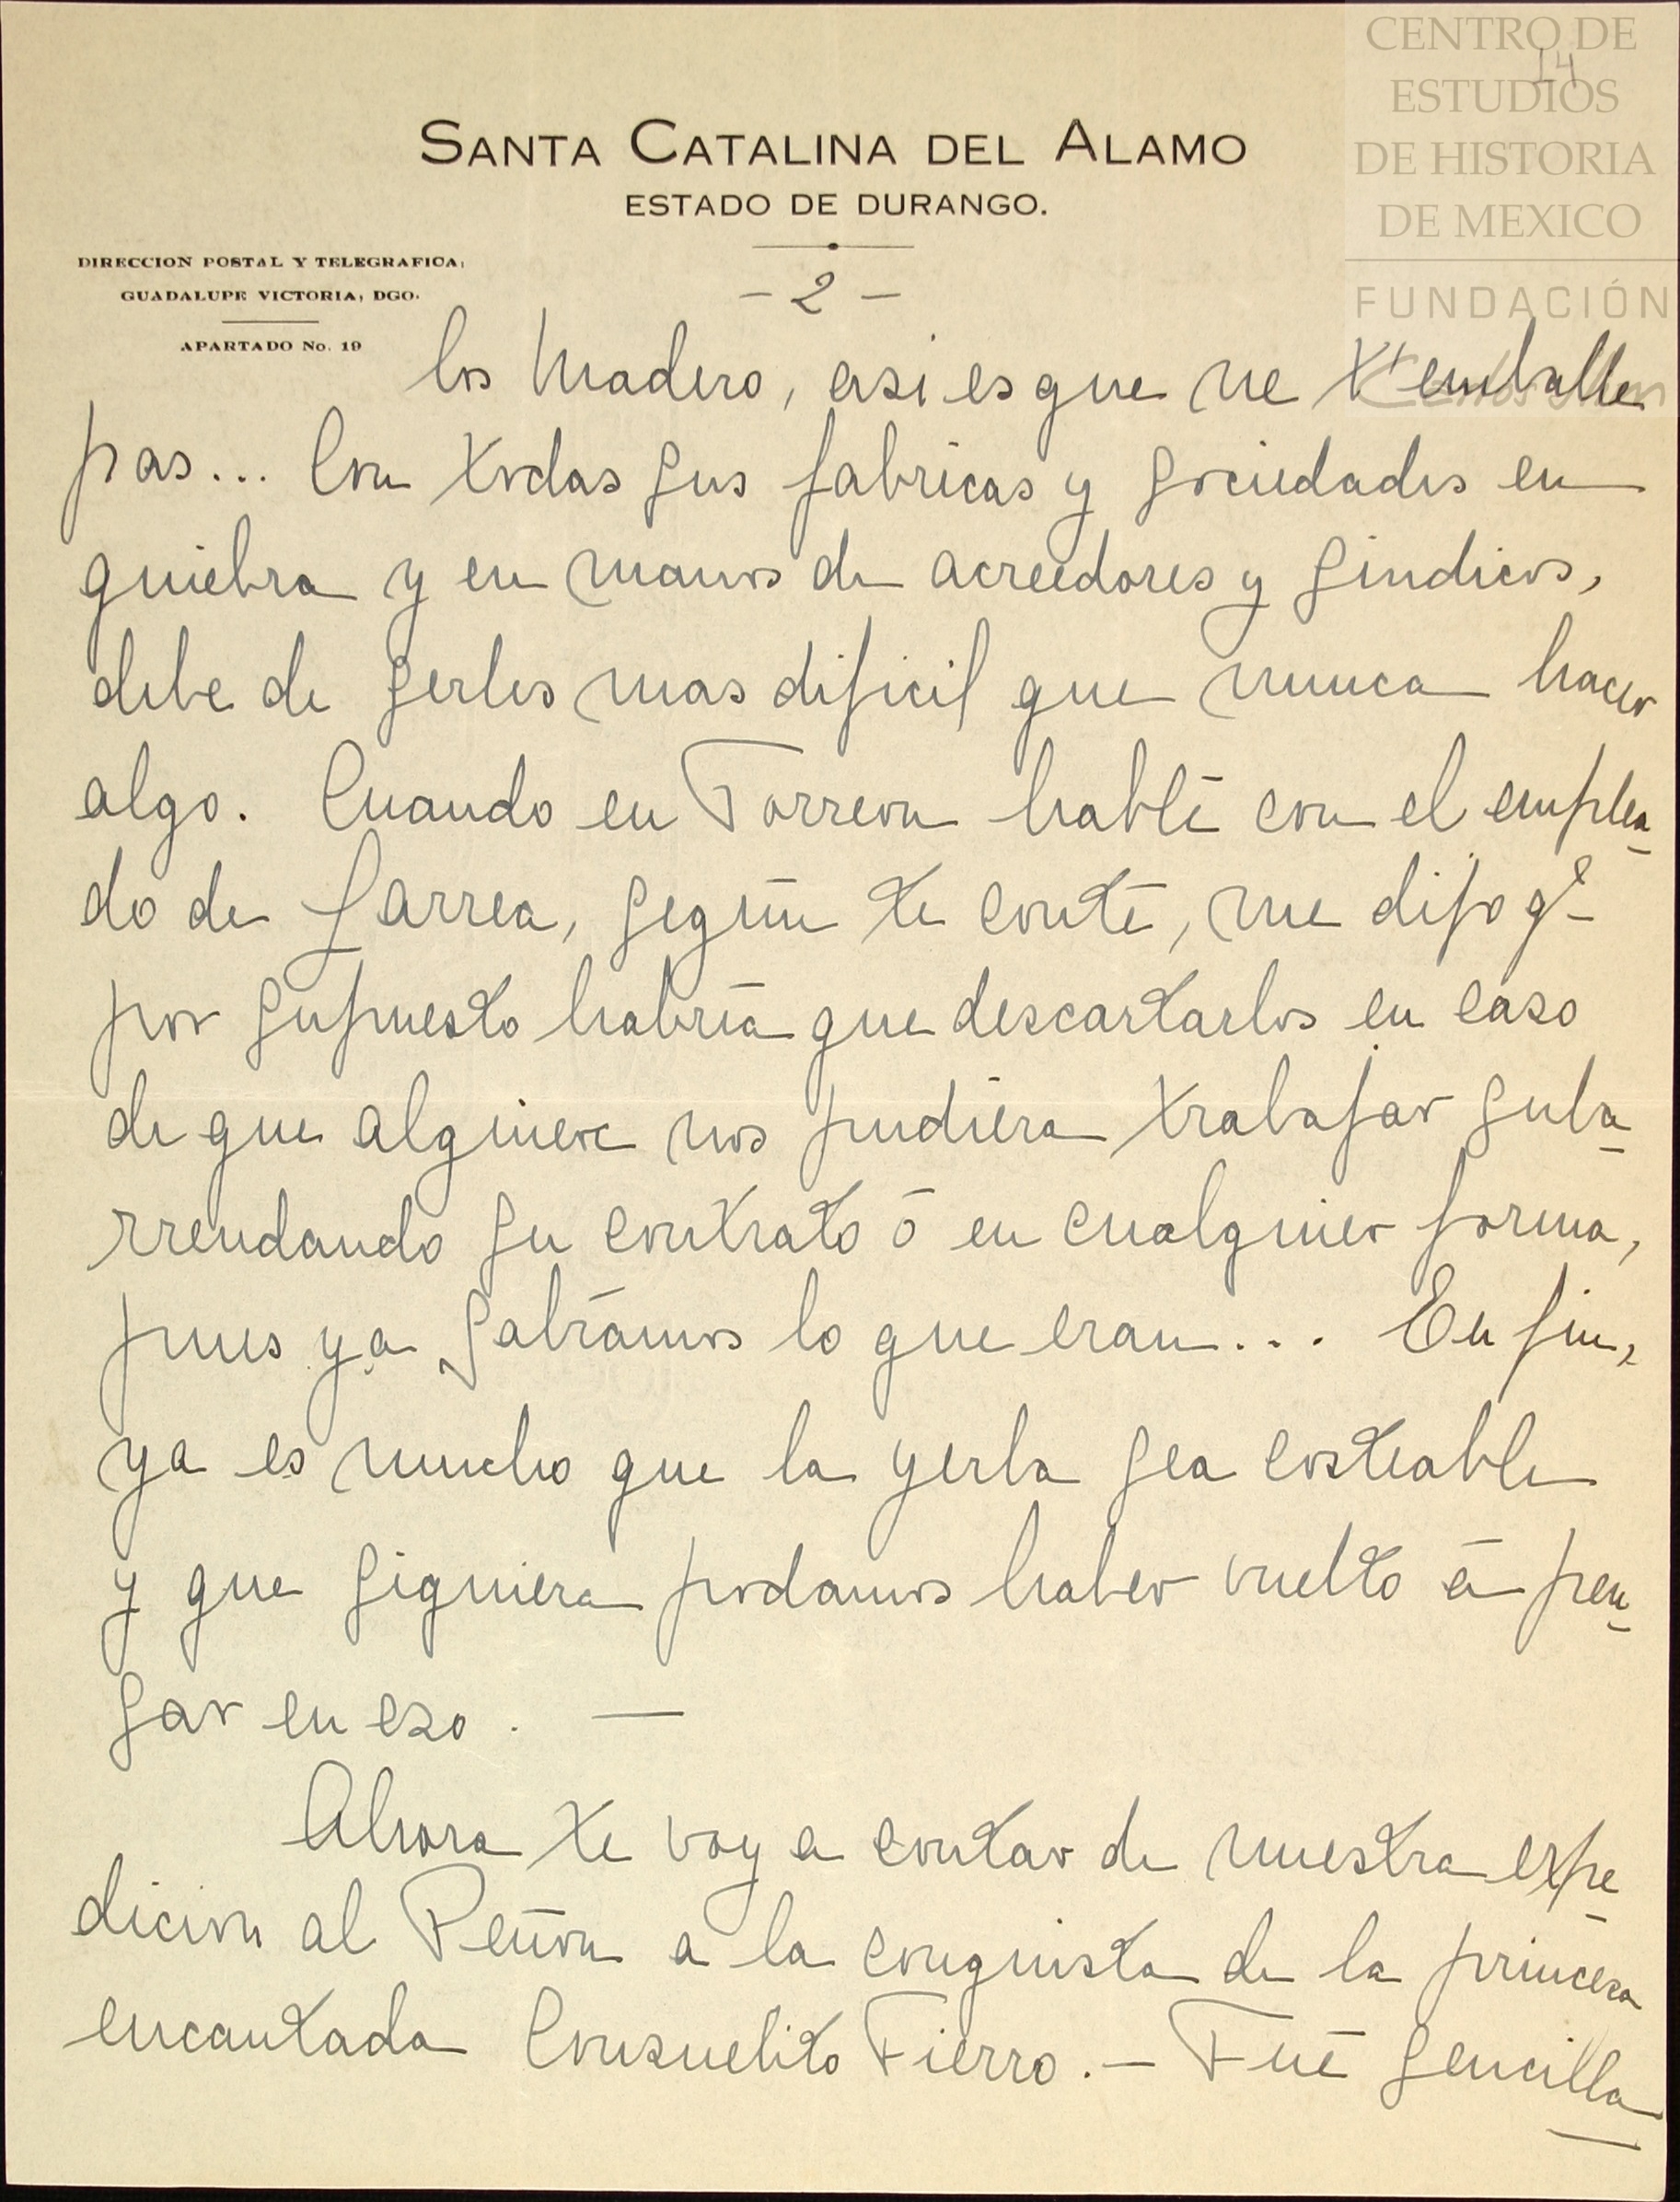 CENTRO DE
ESTUDIOS
DE HISTORIA
DE MEXICO
FUNDACIÓN
14
SANTA CATALINA DEL ALAMO
ESTADO DE DURANGO.
DIRECCION POSTAL Y TELEGRAFICA,
GUADALUPE VICTORIA, DGO.
APARTADO No. 19
- 2 -
los Madero, asi es que ne t'emballe
pas... Con todas sus fabricas y sociedades en
quiebra y en manos de acreedores y sindicos,
debe de serles mas dificil que nunca hacer
algo. Cuando en Torreon hablé con el emplea
do de Larrea, según te conté, me dijo qe
por supuesto habría que descartarlos en caso
de que alguien nos pudiera trabajar suba
rrendando su contrato ó en cualquier forma,
pues ya sabíamos lo que eran... En fin,
ya es mucho que la yerba sea costeable
y que siquiera podamos haber vuelto á pen
sar en eso. —
Ahora te voy a contar de nuestra expe
dicion al Peñon a la conquista de la princesa
encantada Consuelito Fierro. — Fué sencilla